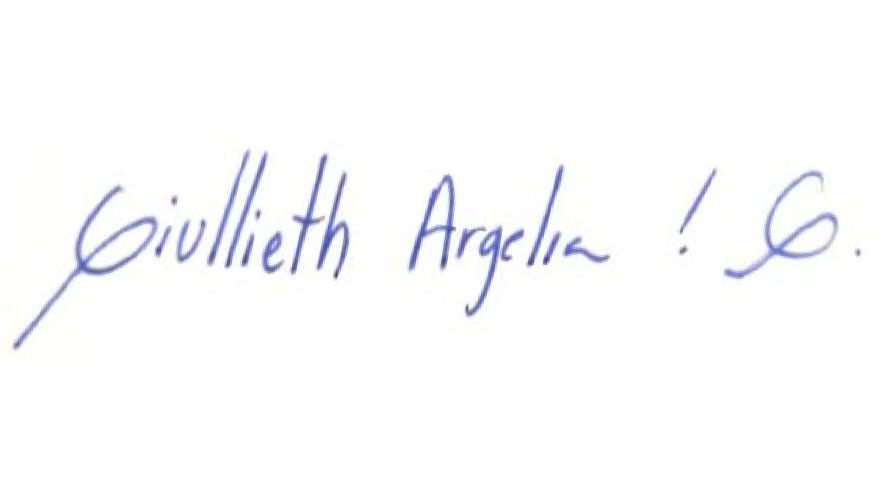 Giullieth Argelia ! G.